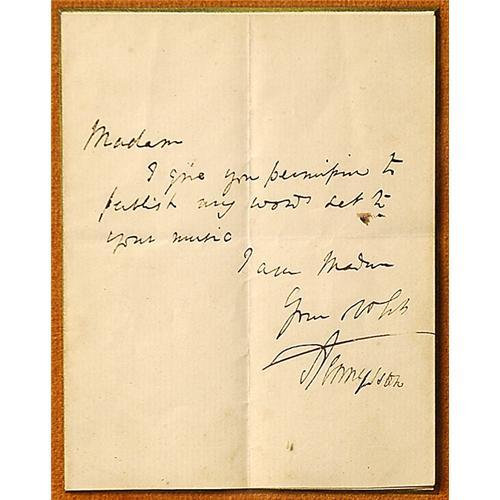 Madam
I give you permission to
publish my words set to
your music
I am Madam
Your obt
A Tennyson